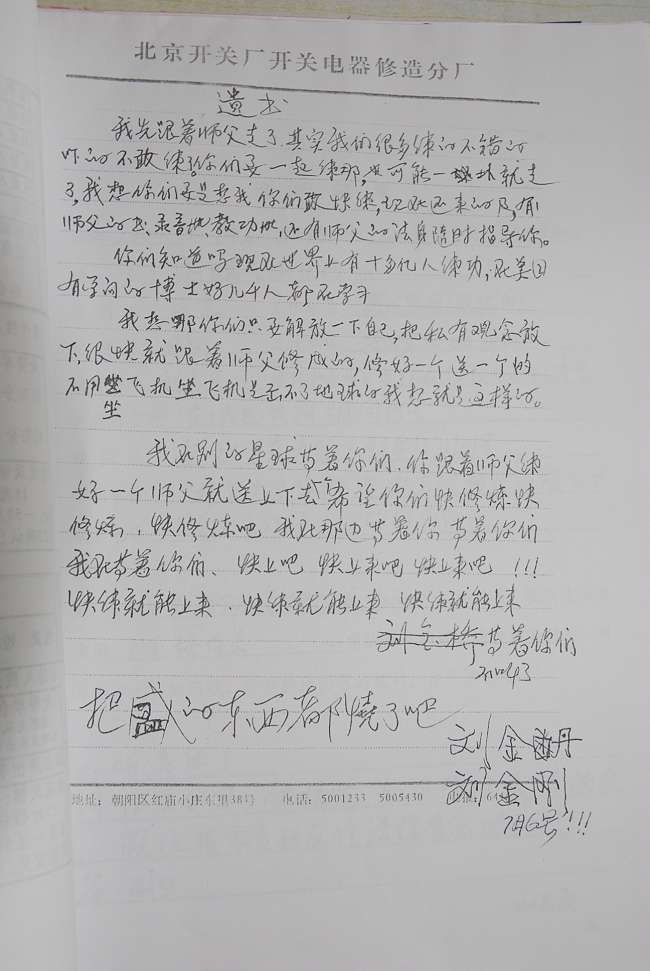 北京开关厂开关电器修造分厂
遗书
我先跟着师父走了其实我们很多练的不错的
吓的不敢练了你们要一起练那,也可能一块就走
了,我想你们要是想我你们敢快练,现在还来的及,有
师父的书、录音地、教功地,还有师父的法身随时指导你。
你们知道吗现在世界上有十多亿人练功,在美国
有学问的博士好几千人都在学
我想哪你们只要解放一下自己,把私有观念放
下,很快就跟着师父修成的,修好一个送一个的
不用坐飞机坐飞机是不了地球的我想就是这样的。
坐
我在别的星球等着你们、你跟着师父练
好一个师父就送上下去个希望你们快修炼快
修炼,快修炼吧 我在那边等着你 等着你们
我在等着你们、快上吧 快上来吧 快上来吧 !!!
快练就能上来、快练就能上来 快练就能上来
刘金桥等着你们
把 的东西都燒了吧
刘金 丹
刘金刚
地址:朝阳区红庙小庄东里38号 电话:5001233 5005430
7月6号!!!